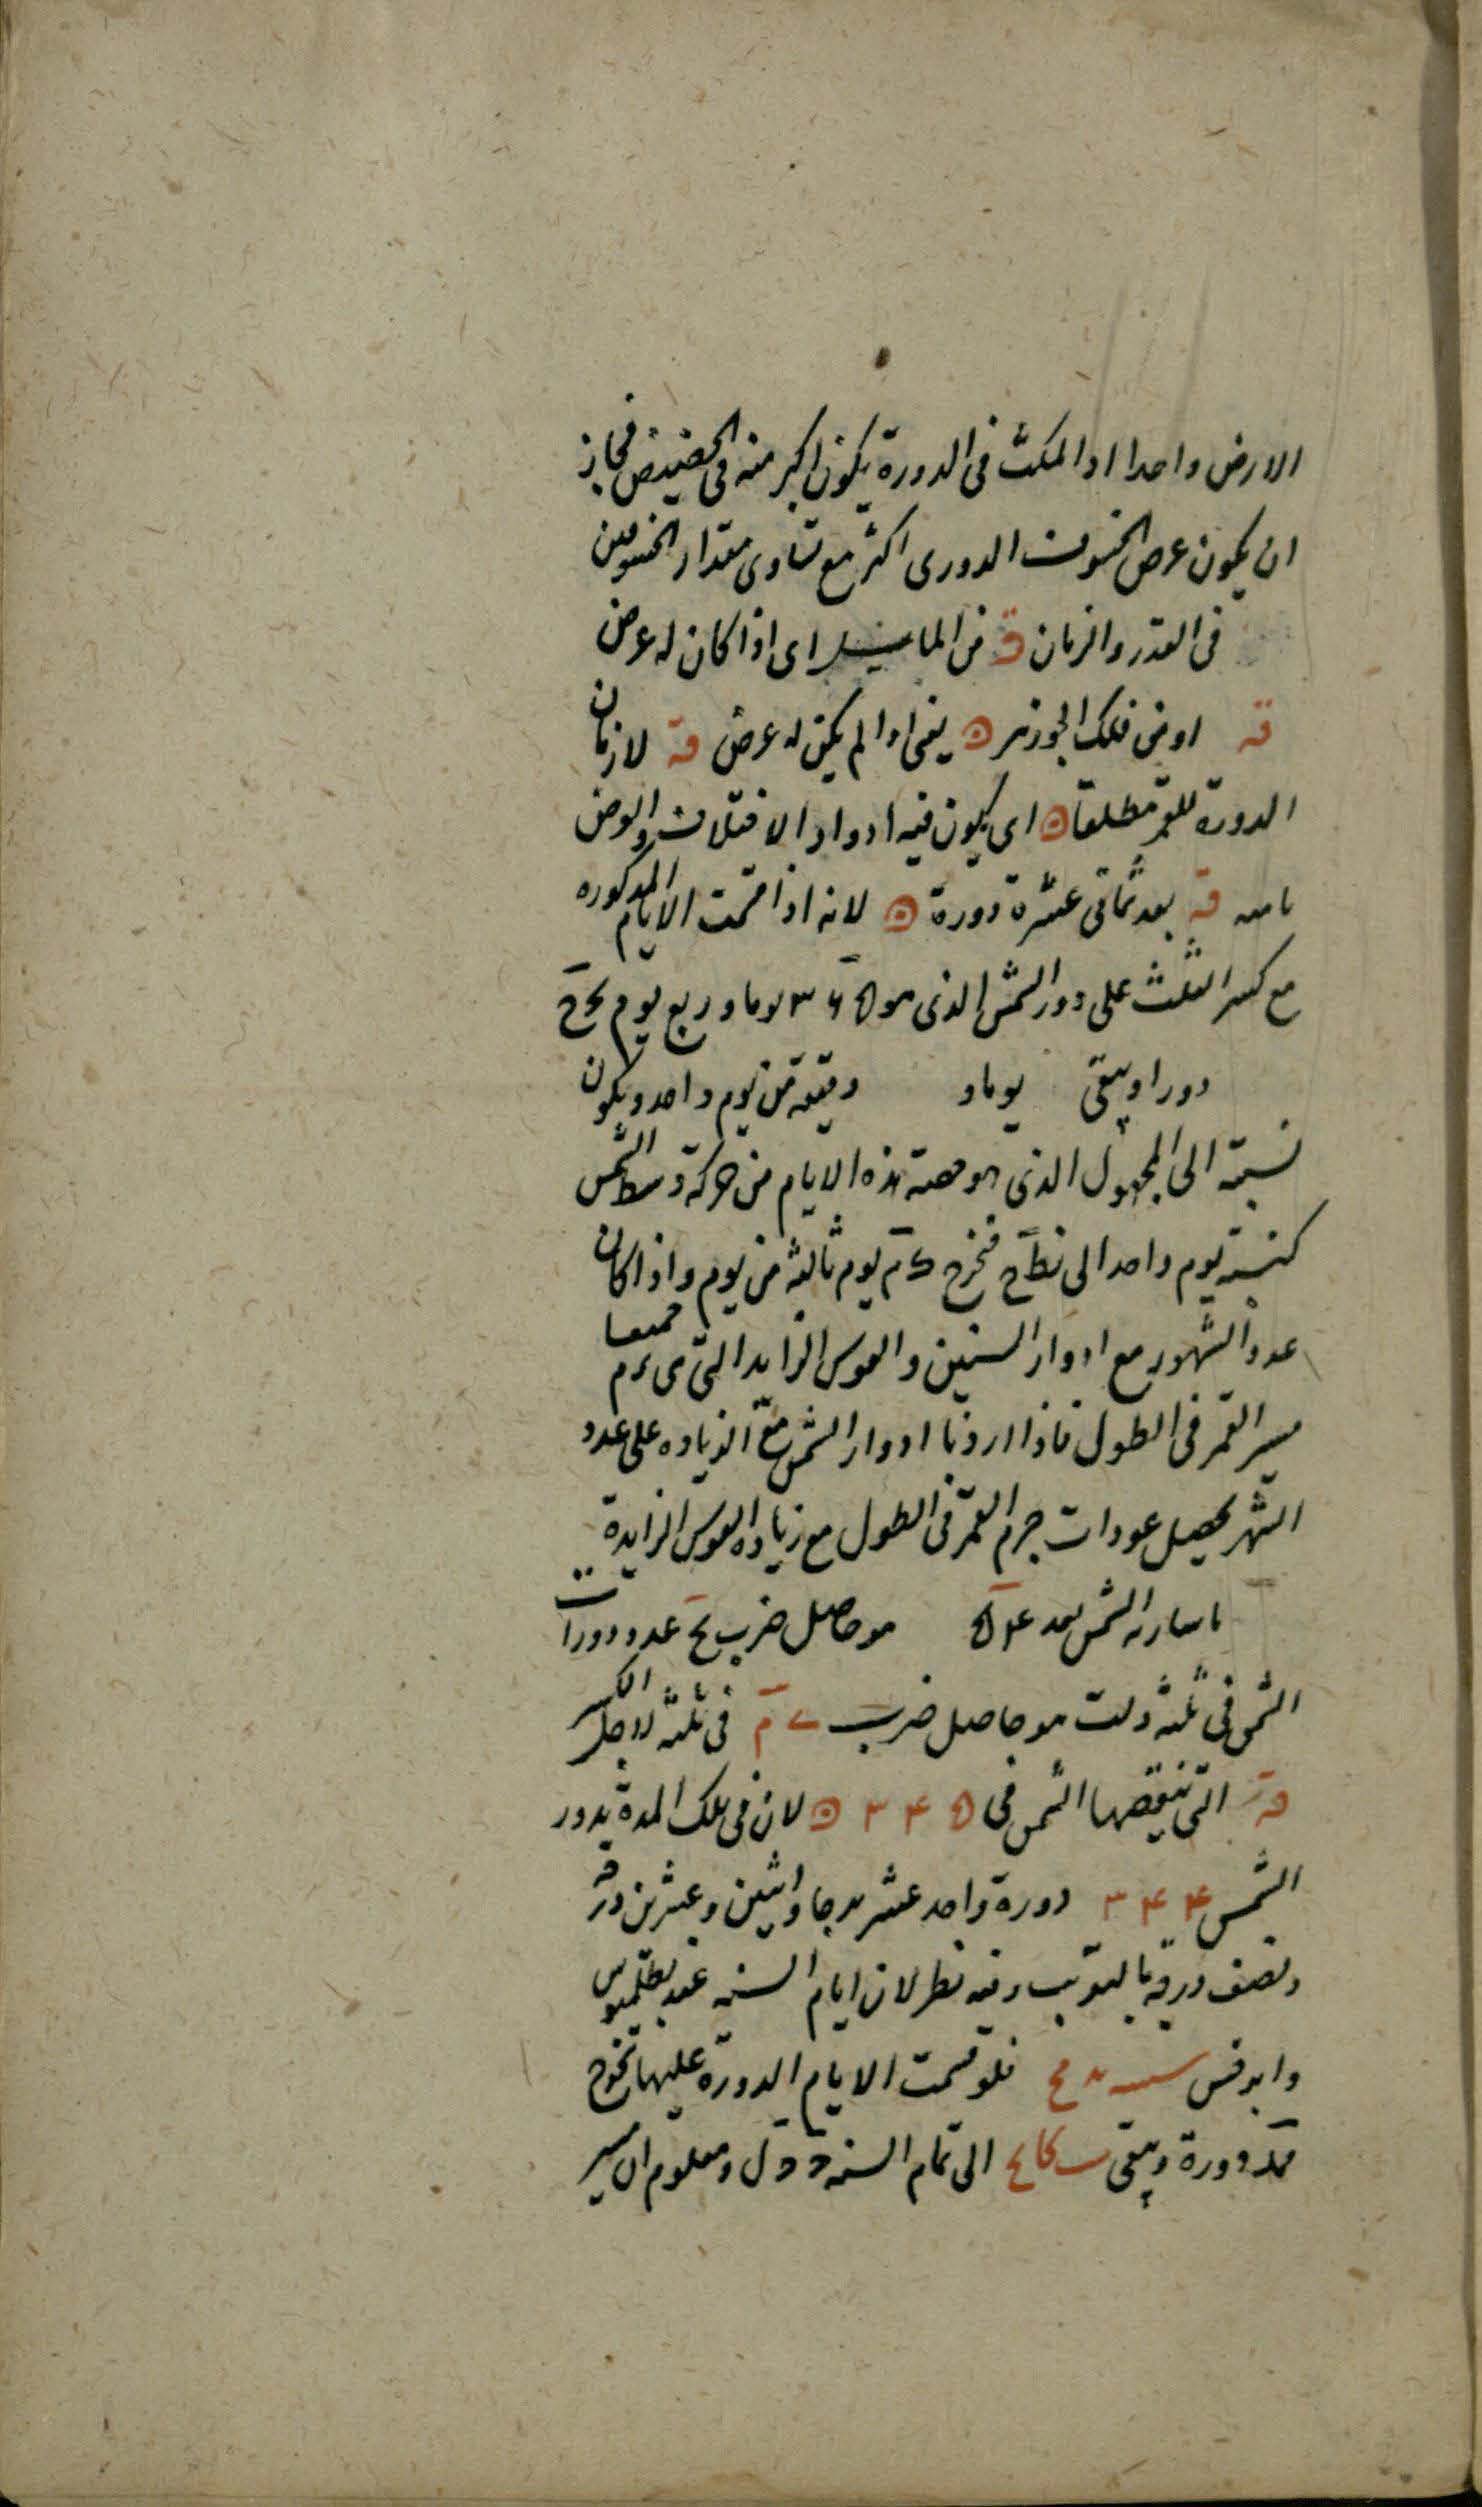 الارض واحدا او المكث فى الدورة يكون اكبر منه فى الحضيض فجاز
ان يكون عرض الخسوف الدورى اكثر مع تساوى مقدار الخسوفين
فى القدر والزمان قه من المايل اى اذا كان له عرض
قه او من فلك الجوزهر ۵ يعنى اذا لم يكن له عرض قه لازمان
الدورة للقمر مطلقا ۵ اى يكون فيه ادوار الاختلاف والعرض
تامه قه بعد ثمانى عشرة دورة ۵ لانه اذا قسمت الايام المذكوره
مع كسر الثلث على دور الشمس الذى هو ۳۶۵ يوما وربع يوم يخرج
دورا ويبقى يوما و دقيقة من يوم واحد ويكون
نسبته الى المجهول الذى هو حصة هذه الايام من حركة وسط الشمس
كنسبة يوم واحد الى نط ح فخرج يوم ثالثة من يوم واذا كان
عدد الشهور مع ادوار السنين والقوس الزايد التى هى جميعا
مسير القمر فى الطول فاذا اردنا ادوار الشمس مع الزياده على عدد
الشهر يحصل عودات جرم القمر فى الطول مع زياده القوس الزايدة
الشمس بعد هو حاصل ضرب يح عدد دورات
الشمس فى ثلثة وثلث هو حاصل ضرب ى م فى ثلثة لاجل الكسر
قه التى تنقصها الشمس فى ۳۴۵ ۵ لان فى تلك المدة يدور
الشمس ۳۴۴ دورة واحد عشر برجا واثنين وعشرين درجه
ونصف درجة بالتقريب وفيه نظر لان ايام السنه عند بطلميوس
وابرخس فلو قسمت الايام الدورة عليها تخرج
دورة ويبقى الى تمام السنه ومعلوم ان مسير